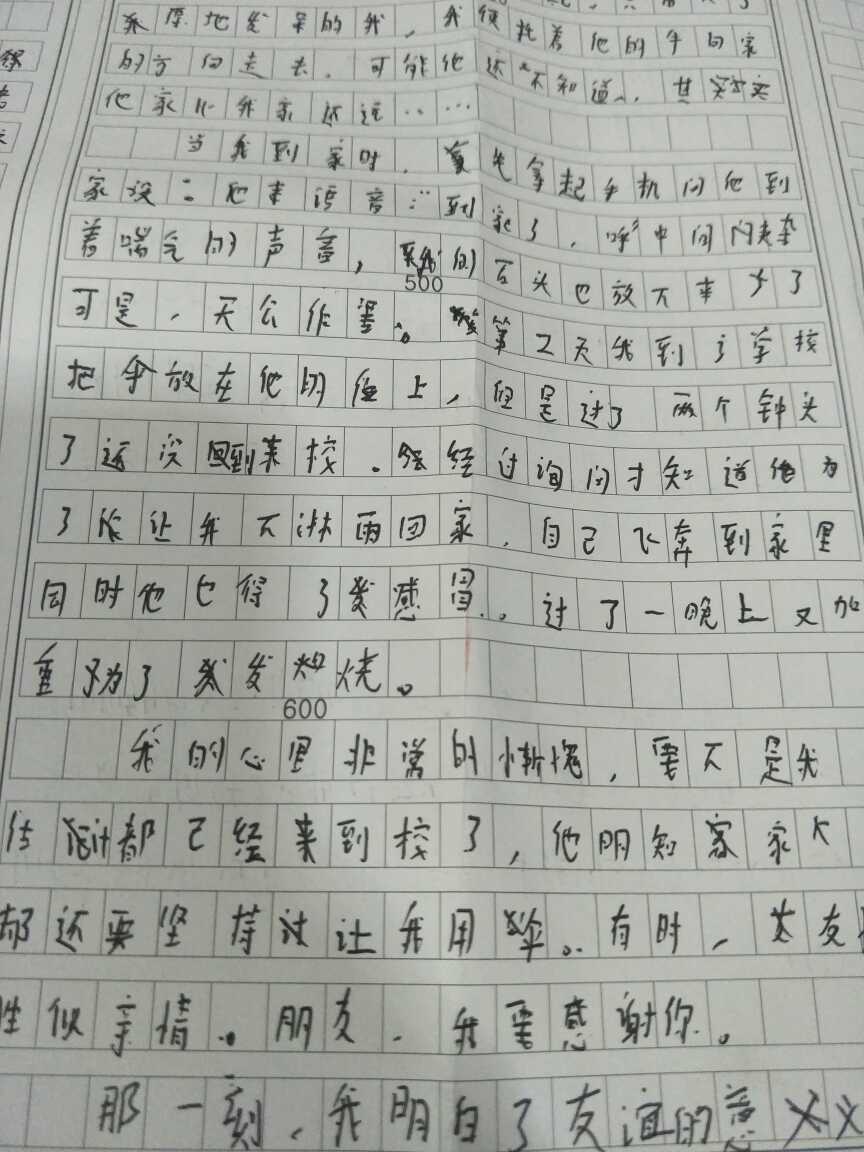 原地发呆的我,我便托着他的伞向家
的方向走去.可能他还不知道,其实
他家比我家还远……
当我到家时.首先拿起手机问他到
家没:他来语音:到家了,呼中间闪夹杂
着喘气的声音,我的石头也放下来了
500
可是,天公作
第二天我到了学校
把伞放在他的位上,但是过了两个钟头
了还没回到来校.经过询问才知道他为
了能让我不淋雨回家,自己飞奔到家里
同时他也得了感冒.过了一晚上又加
重为了发烧。
600
我的心里非常的惭愧,要不是我
估计都已经来到校了,他明知家
却还要坚持让我用伞.有时,友
性似亲情.朋友.我要感谢你。
那一刻,我明白了友谊的意义